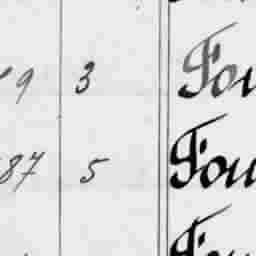 9 3 Fou
87 5 Fou
Fou